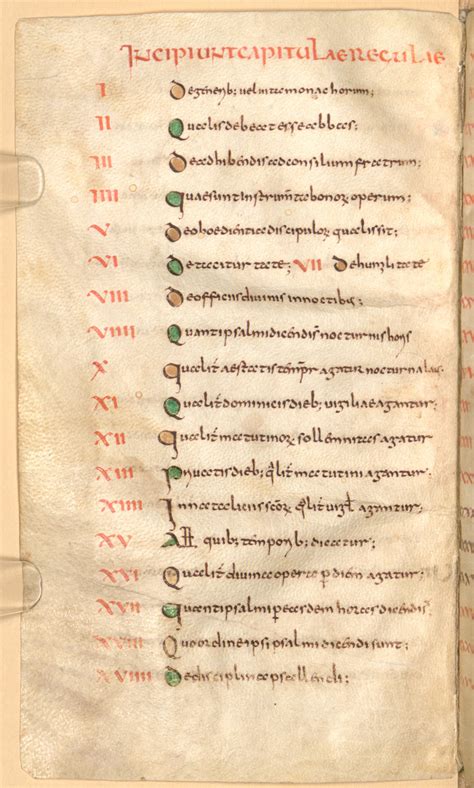 INCIPIUNT CAPITULAE REGULAE
I De generib; vel vita monachorum;
II Qualis debeat esse abbas;
III De adhibendis ad consilium fratrum;
IIII Quae sunt instrum̄ta bonoꝝ operum;
V De oboedientia discipuloꝝ qualis sit;
VI De taciturtate; VII De humilitate
VIII De officiis divinis in noctibus;
VIIII Quanti psalmi dicendi s̄ nocturnis horis
X Qualit̄ aestatis temp̄r agatur nocturna laus
XI Qualit̄ dominicis dieb; vigiliae agantur;
XII Qualit̄ matutinoꝝ sollemnitas agatur
XIII Privatis dieb; qlit̄ matutini agatur;
XIIII In nataliciis sc̄oꝝ qlit̄ vigl̄ agantur;
XV All quib; temporib; dicatur;
XVI Qualit̄ divina opera p̱ diem agatur;
XVII Quanti psalmi p̱ easdem horas dicendi s̄;
XVIII Quo ordine ipsi psalmi dicendi sunt;
XVIIII De disciplina psallendi;